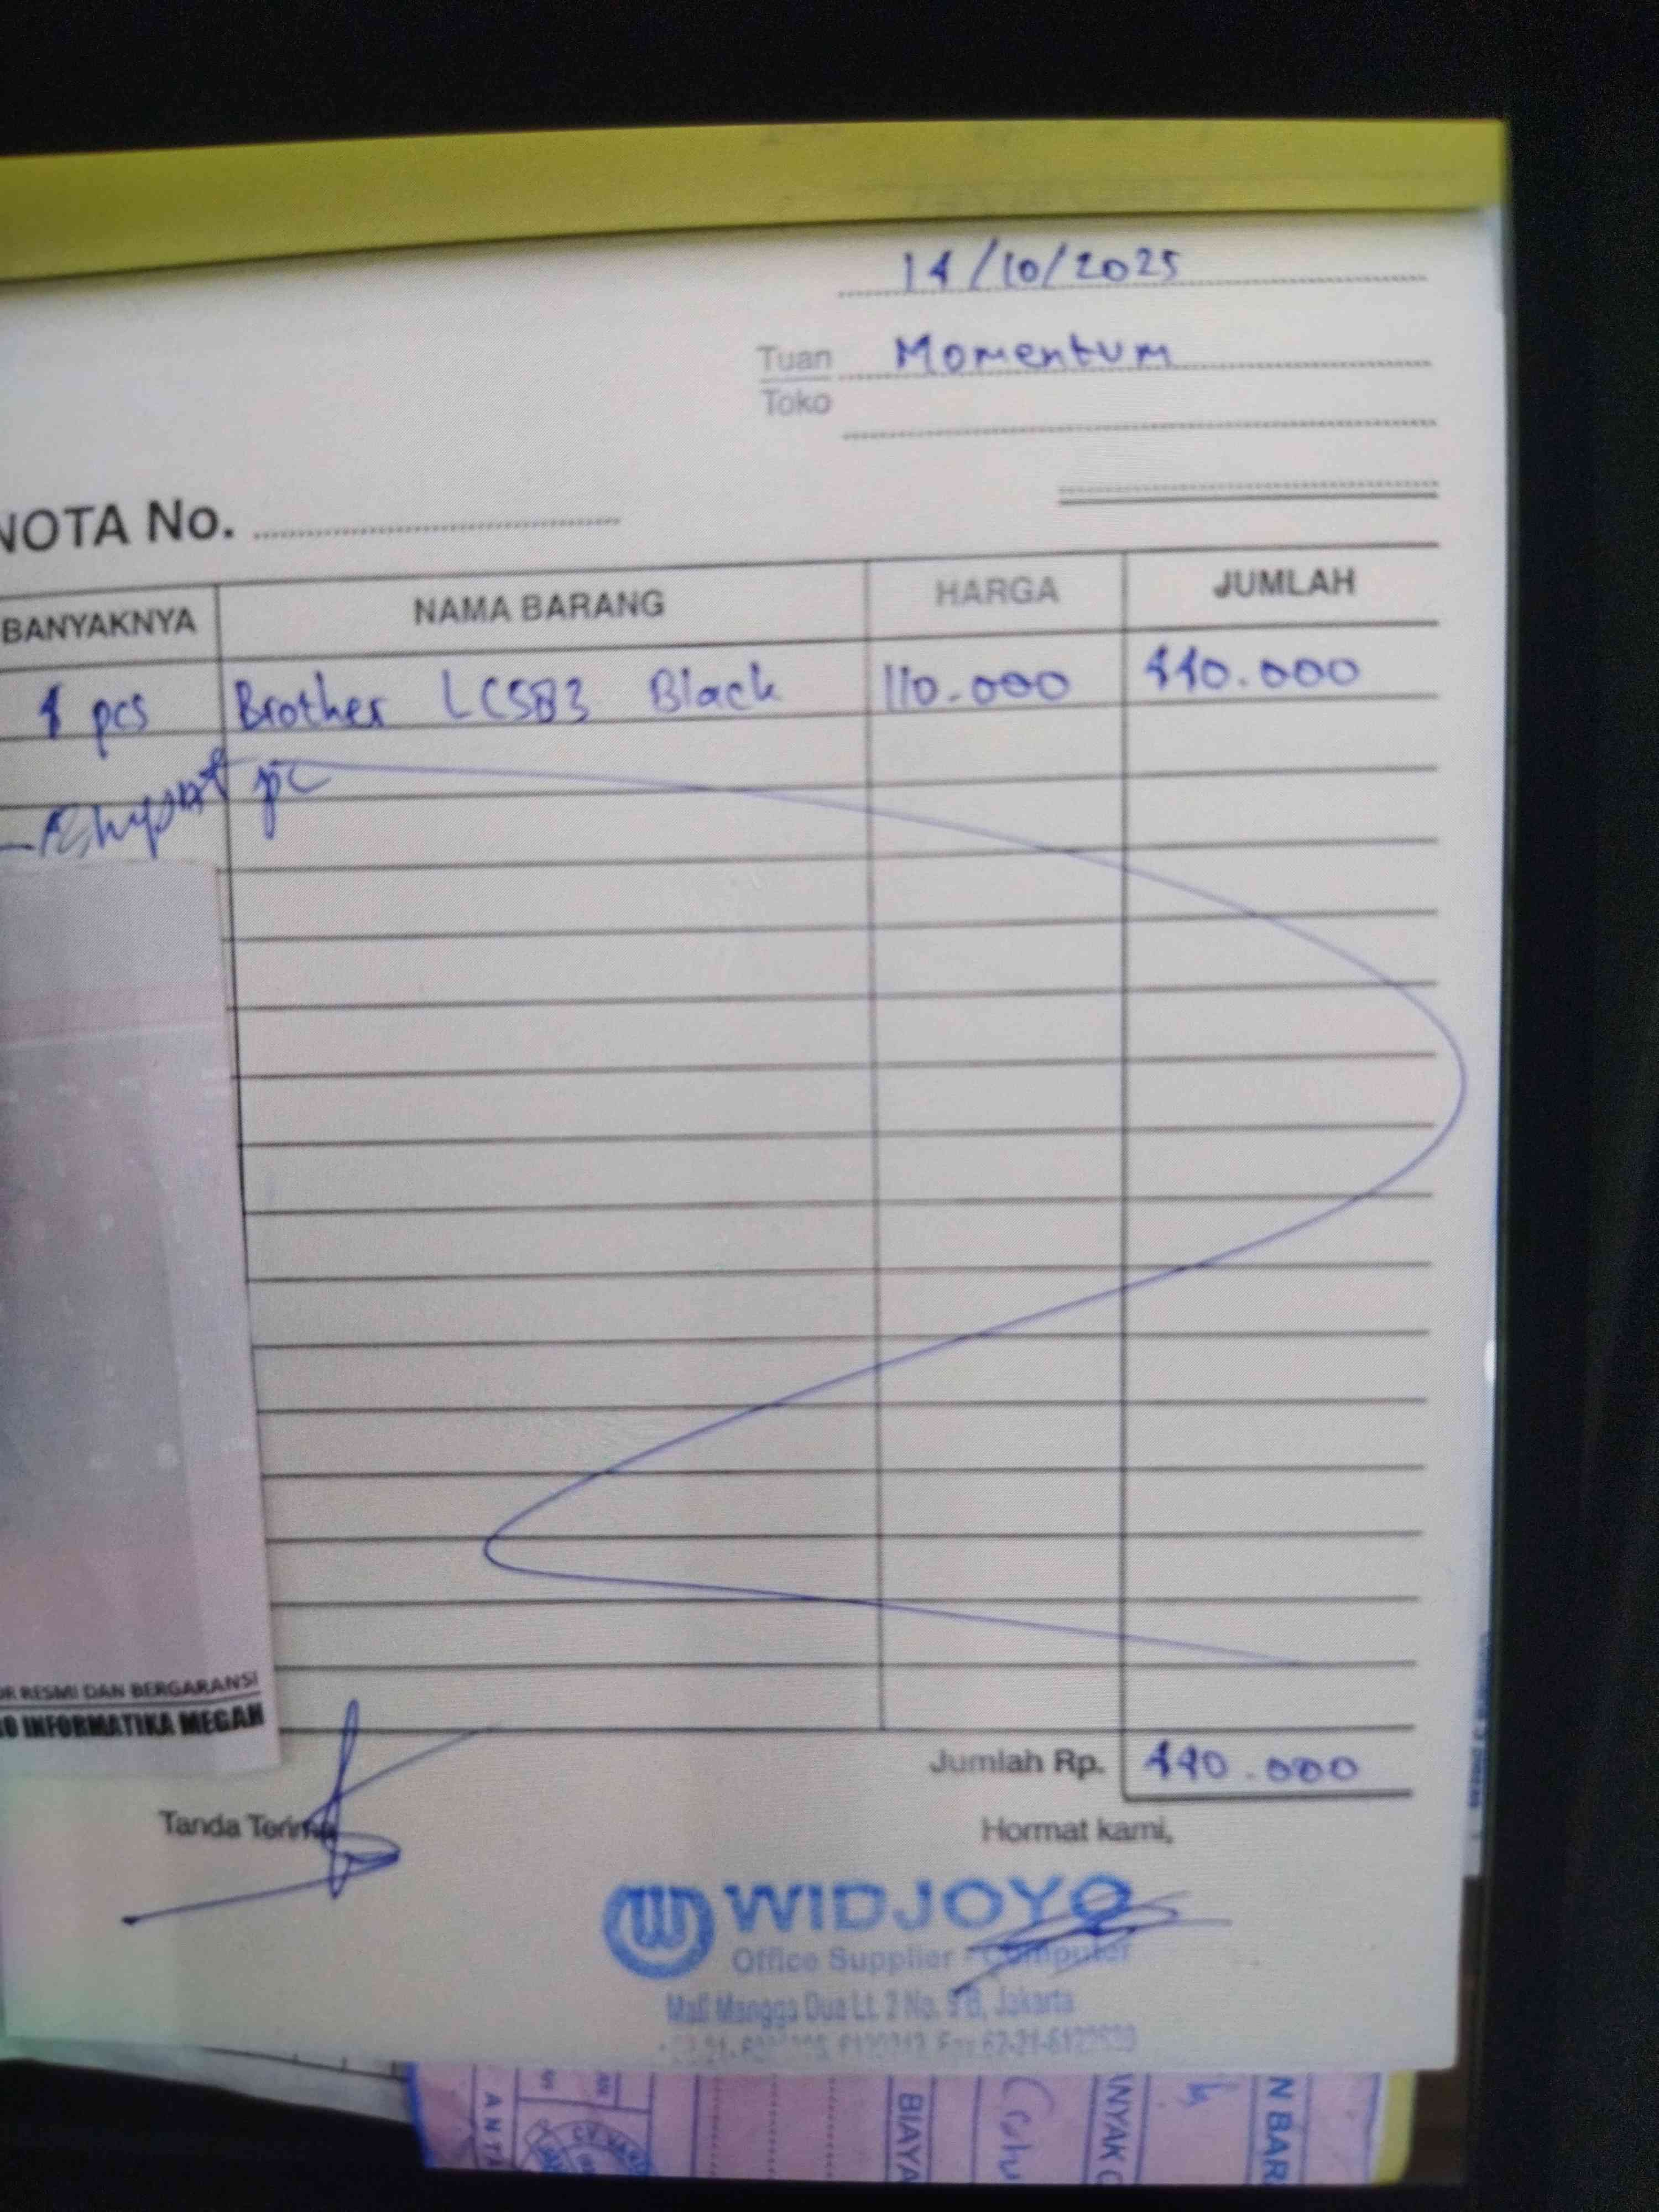 14/10/2025
Tuan Momentum
Toko
NOTA No.
BANYAKNYA NAMA BARANG HARGA JUMLAH
4 pcs Brother LC583 Black 110.000 440.000
pc
OR RESMI DAN BERGARANSI
RO INFORMATIKA MEGAH
Jumlah Rp. 440.000
Tanda Terima
Hormat kami,
WIDJOYO
Office Supplier - Computer
Mall Mangga Dua Lt. 2 No. 9 B, Jakarta
BIAYA
NYAK
N BAR